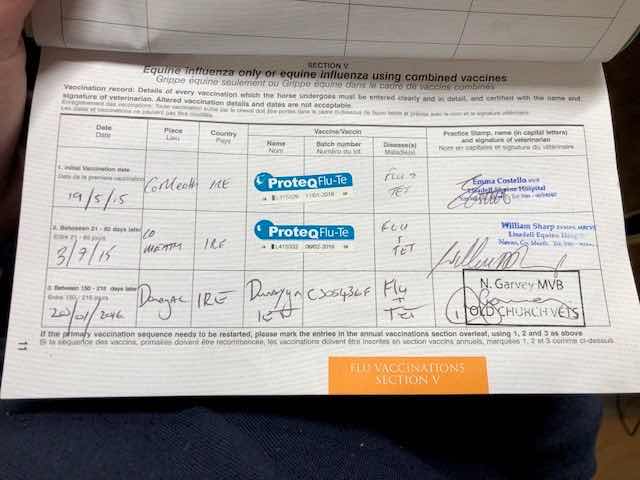 SECTION V
Equine Influenza only or equine influenza using combined vaccines
Grippe équine seulement ou Grippe équine dans le cadre de vaccins combinés
Vaccination record: Details of every vaccination which the horse undergoes must be entered clearly and in detail, and certified with the name and
signature of veterinarian. Altered vaccination details and dates are not acceptable.
Date
Date
Place
Lieu
Country
Pays
Vaccine/Vaccin
Name
Nom
Batch number
Numéro du lot
Disease(s)
Maladie(s)
Practice Stamp, name (in capital letters)
and signature of veterinarian
Nom en capitales et signature du vétérinaire
1. Initial Vaccination date
Date de la première vaccination
19/5/15
Co Meath
IRE
ProteqFlu-Te
11/01/2016
FLU
TET
Emma Costello MVB
Lisadell Equine Hospital
2. Between 21 - 92 days later
Entre 21 - 92 jours
3/7/15
CO
MEATH
IRE
ProteqFlu-Te
L415333
FLU
+
TET
William Sharp
Lisadell Equine
Navan, Co Meath
3 Between 150 - 215 days later
Entre 150 - 215 jours
20/01/2016
Donegal
IRE
Duvaxyn
IET
Flu
+
TET
N. Garvey MVB
OLD CHURCH VETS
If the primary vaccination sequence needs to be restarted, please mark the entries in the annual vaccinations section overleaf, using 1, 2 and 3 as above
Si la séquence des vaccins, primaires doivent être recommencée, les vaccinations doivent être inscrites en section vaccins annuels, marquées 1, 2 et 3 comme ci-dessus
11
FLU VACCINATIONS
SECTION V